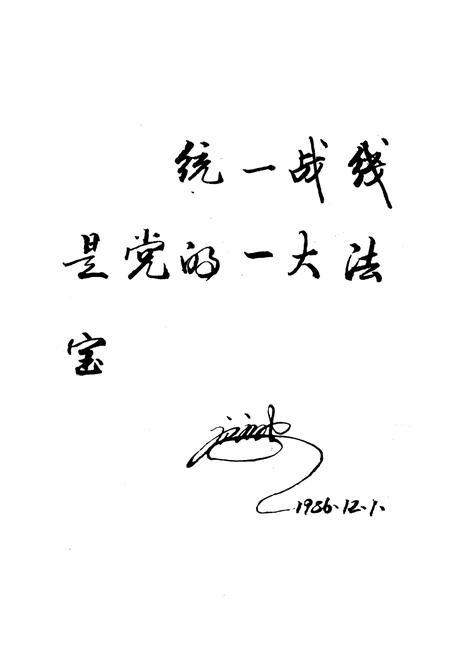 统一战线
是党的一大法
宝
1986.12.1.